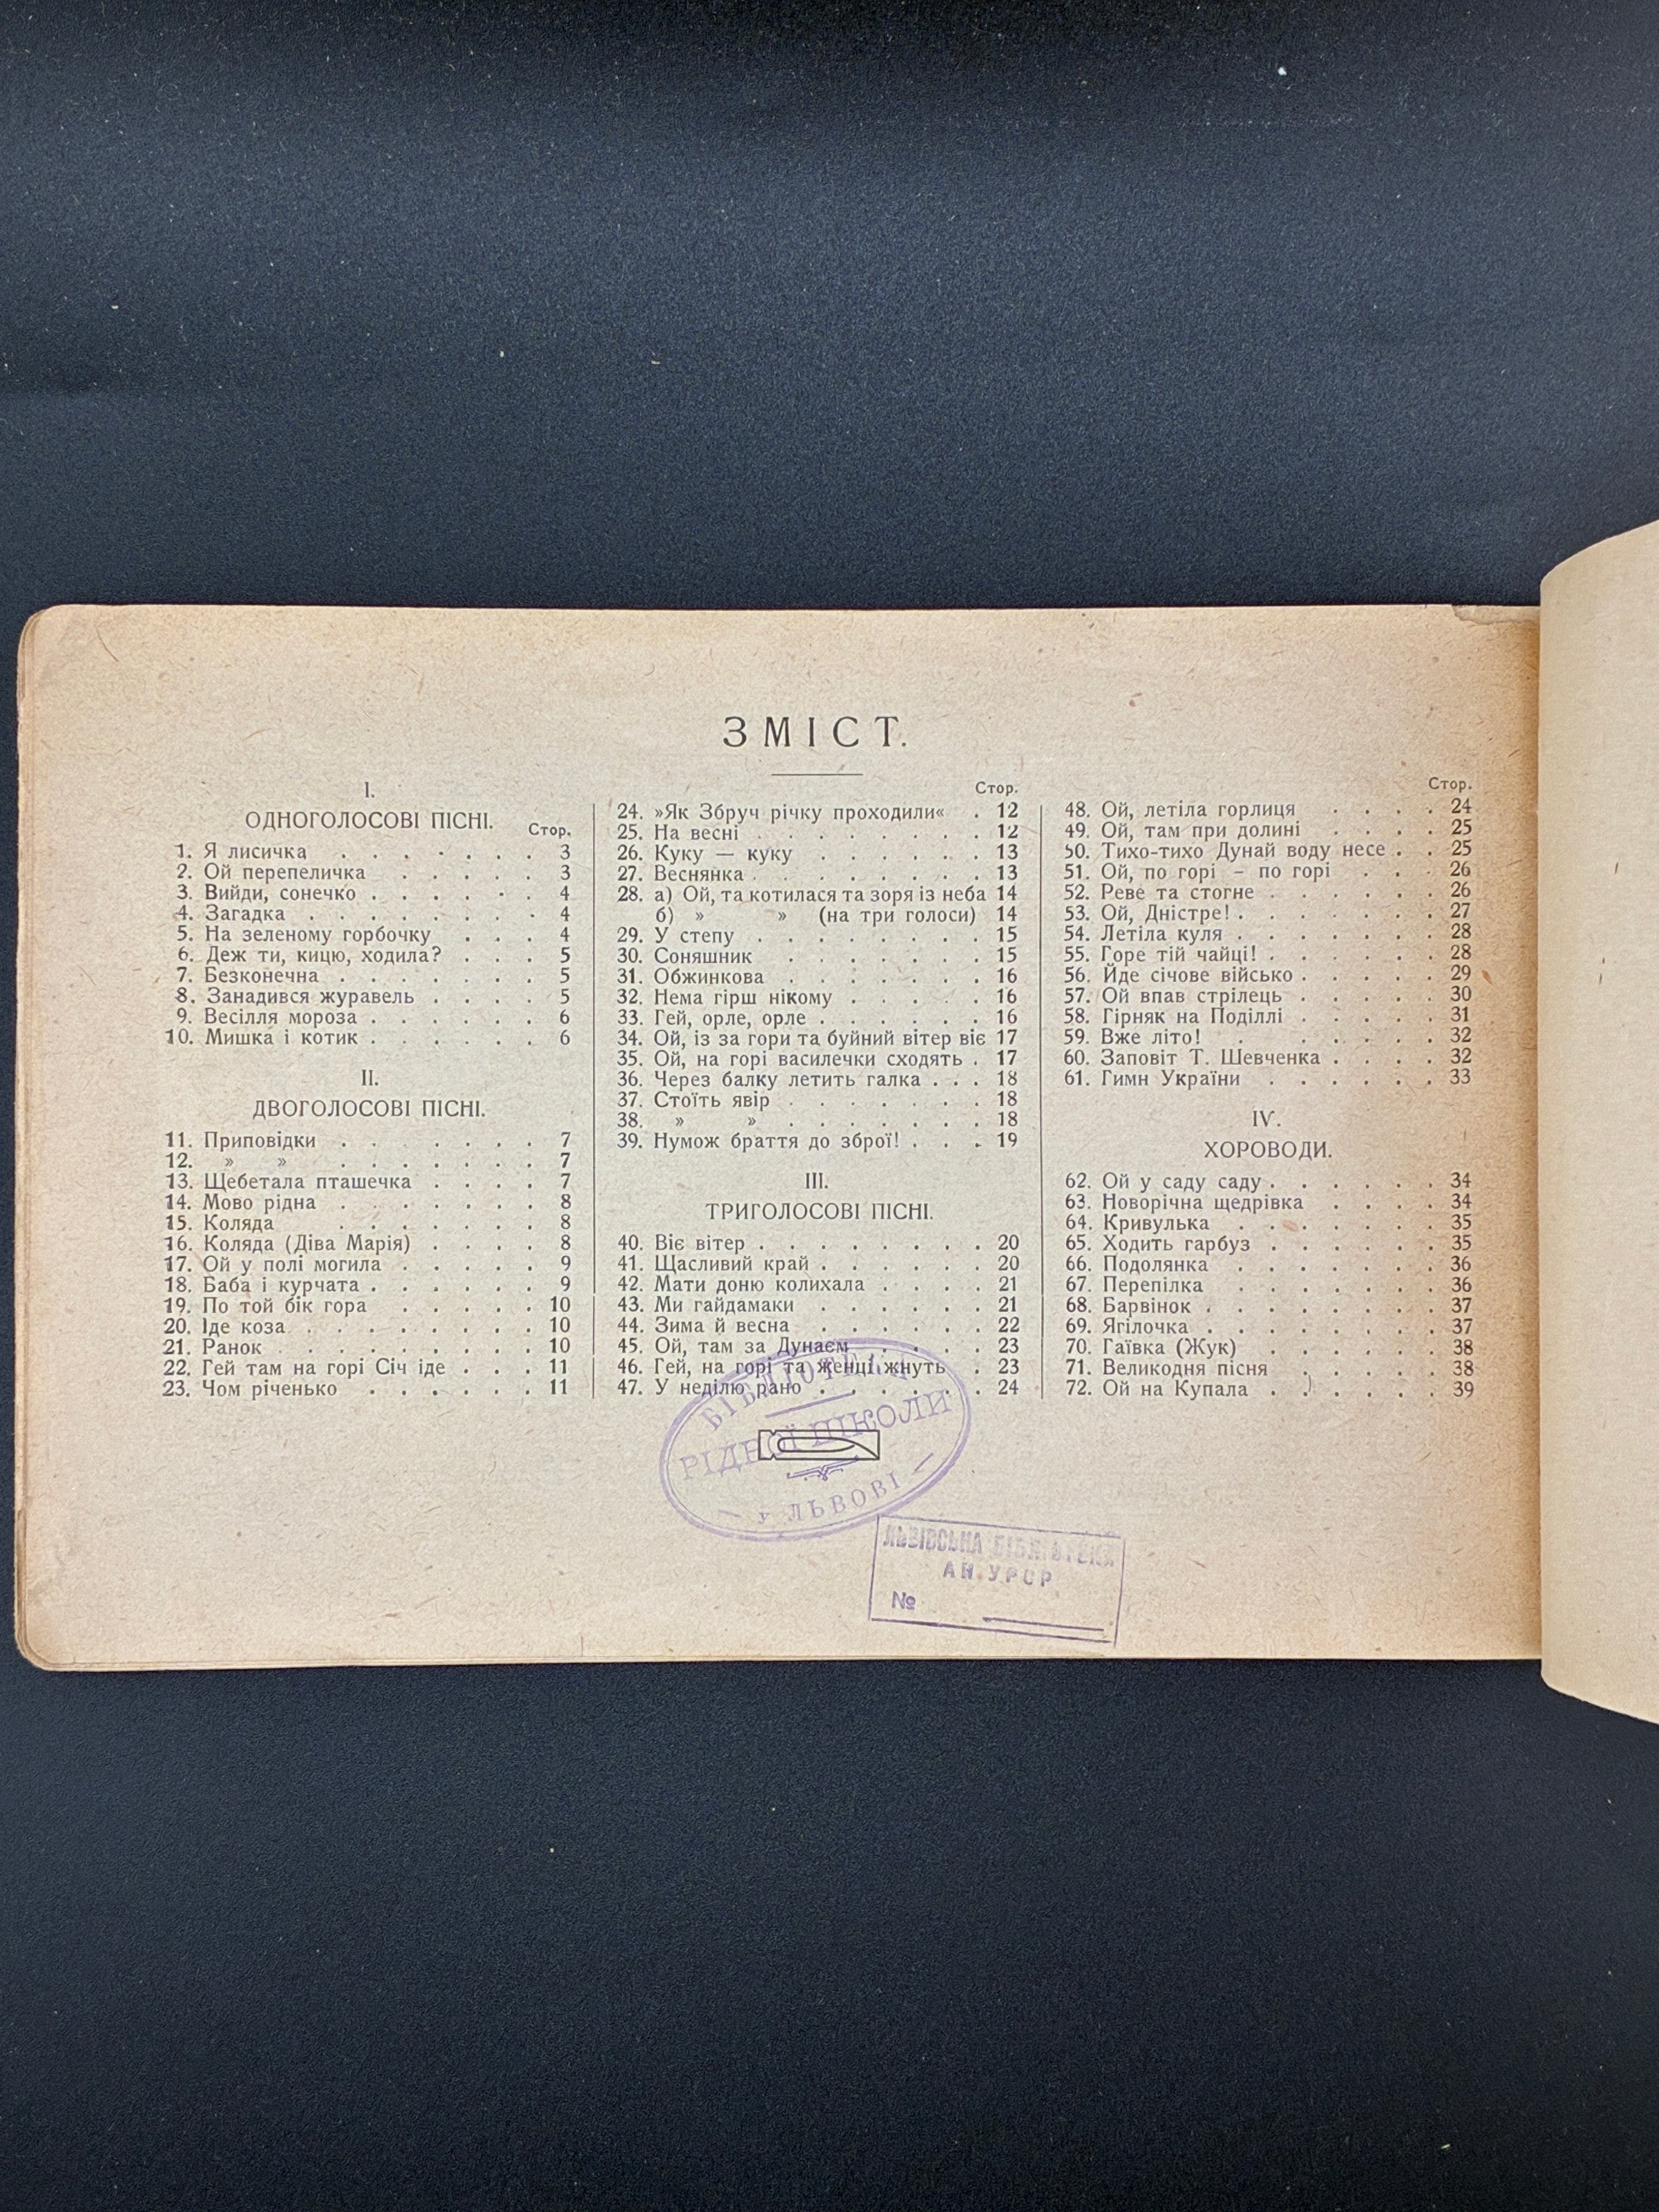 ЗМІСТ.
I.
ОДНОГОЛОСОВІ ПІСНІ.
Стор.
1. Я лисичка . . . . . . . 3
2. Ой перепеличка . . . . . 3
3. Вийди, сонечко . . . . . . 4
4. Загадка . . . . . . . . 4
5. На зеленому горбочку . . . 4
6. Деж ти, кицю, ходила? . . . 5
7. Безконечна . . . . . . . 5
8. Занадився журавель . . . . 5
9. Весілля мороза . . . . . . 6
10. Мишка і котик . . . . . . 6
II.
ДВОГОЛОСОВІ ПІСНІ.
11. Приповідки . . . . . . 7
12. » » . . . . . . . 7
13. Щебетала пташечка . . . . 7
14. Мово рідна . . . . . . . 8
15. Коляда . . . . . . . 8
16. Коляда (Діва Марія) . . . . 8
17. Ой у полі могила . . . . . 9
18. Баба і курчата . . . . . . 9
19. По той бік гора . . . . . 10
20. Іде коза . . . . . . . . 10
21. Ранок . . . . . . . . 10
22. Гей там на горі Січ іде . . . 11
23. Чом річенько . . . . . . 11
Стор.
24. »Як Збруч річку проходили« . 12
25. На весні . . . . . . . . 12
26. Куку — куку . . . . . . 13
27. Веснянка . . . . . . . . 13
28. а) Ой, та котилася та зоря із неба 14
б) » » (на три голоси) 14
29. У степу . . . . . . . . 15
30. Соняшник . . . . . . . 15
31. Обжинкова . . . . . . . 16
32. Нема гірш нікому . . . . . 16
33. Гей, орле, орле . . . . . . 16
34. Ой, із за гори та буйний вітер віє 17
35. Ой, на горі василечки сходять . 17
36. Через балку летить галка . . . 18
37. Стоїть явір . . . . . . . 18
38. » » . . . . . . . 18
39. Нумож браття до зброї! . . . 19
III.
ТРИГОЛОСОВІ ПІСНІ.
40. Віє вітер . . . . . . . . 20
41. Щасливий край . . . . . . 20
42. Мати доню колихала . . . . 21
43. Ми гайдамаки . . . . . . 21
44. Зима й весна . . . . . . 22
45. Ой, там за Дунаєм . . . . 23
46. Гей, на горі та женці жнуть . 23
47. У неділю рано . . . . . . 24
Стор.
48. Ой, летіла горлиця . . . . 24
49. Ой, там при долині . . . . 25
50. Тихо-тихо Дунай воду несе . . 25
51. Ой, по горі – по горі . . . 26
52. Реве та стогне . . . . . . 26
53. Ой, Дністре! . . . . . . . 27
54. Летіла куля . . . . . . . 28
55. Горе тій чайці! . . . . . . 28
56. Йде січове військо . . . . . 29
57. Ой впав стрілець . . . . . 30
58. Гірняк на Поділлі . . . . . 31
59. Вже літо! . . . . . . 32
60. Заповіт Т. Шевченка . . . . 32
61. Гимн України . . . . . . 33
IV.
ХОРОВОДИ.
62. Ой у саду саду . . . . . . 34
63. Новорічна щедрівка . . . . 34
64. Кривулька . . . . . . . 35
65. Ходить гарбуз . . . . . . 35
66. Подолянка . . . . . . . 36
67. Перепілка . . . . . . . 36
68. Барвінок . . . . . . . . 37
69. Ягілочка . . . . . . . . 37
70. Гаївка (Жук) . . . . . . 38
71. Великодня пісня . . . . . 38
72. Ой на Купала . . . . . . 39
БІБЛІОТЕКА
РІДНОЇ ШКОЛИ
— У ЛЬВОВІ —
ЛЬВІВСЬКА БІБЛІОТЕКА
АН УРСР
№